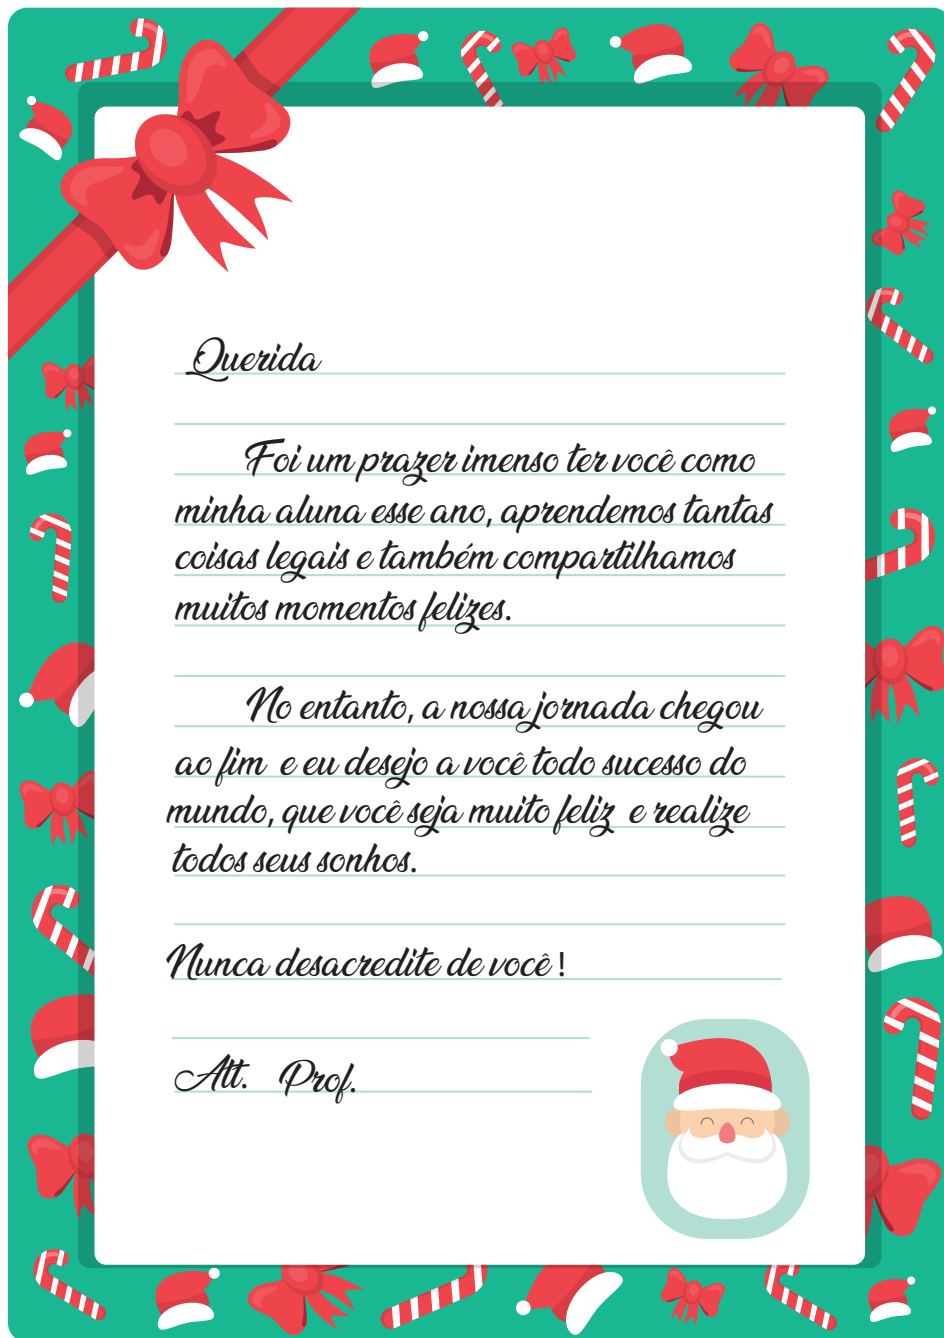 Querida
Foi um prazer imenso ter você como
minha aluna esse ano, aprendemos tantas
coisas legais e também compartilhamos
muitos momentos felizes.
No entanto, a nossa jornada chegou
ao fim e eu desejo a você todo sucesso do
mundo, que você seja muito feliz e realize
todos seus sonhos.
Nunca desacredite de você !
Att. Prof.